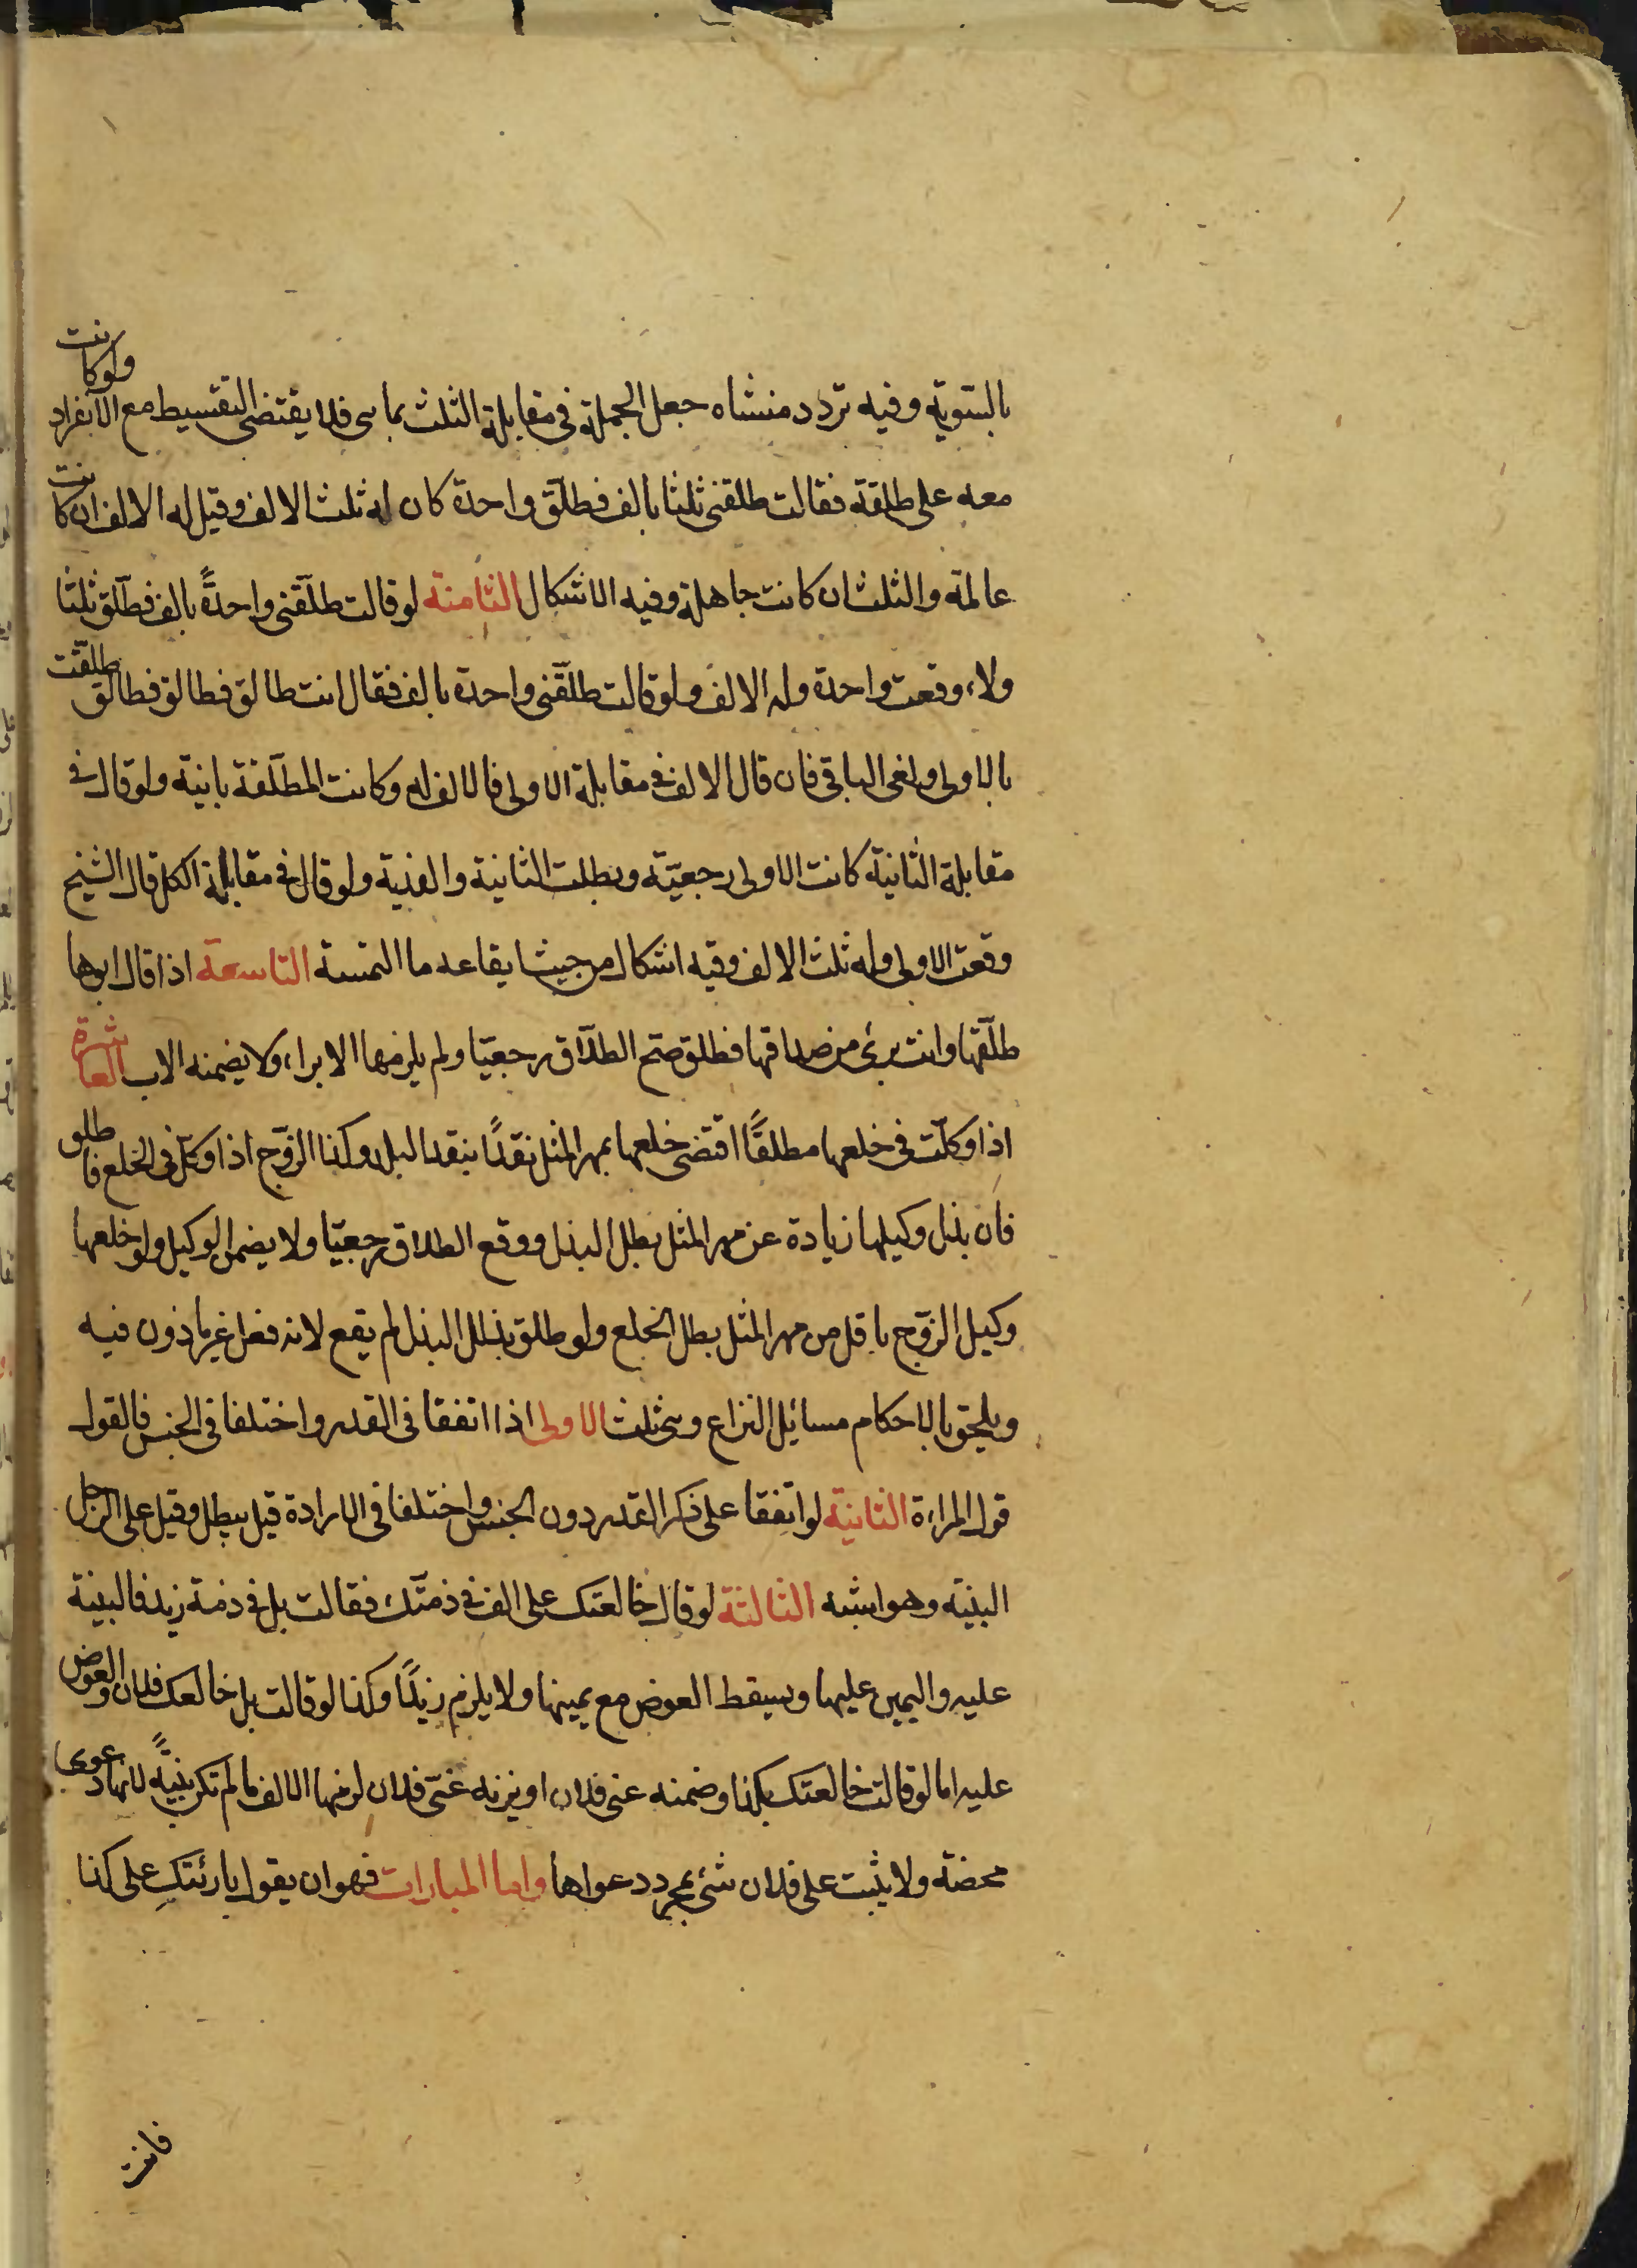 بالسّويّة وفيه تردد منشاه جعل الجملة فى مقابلة الثلث بما هى فلا يقتضى التقسيط مع الانفراد ولو كانت
معه على طلقة فقالت طلقنى ثلثا بالف فطلّق واحدة كان له ثلث الالف وقيل له الالف ان كانت
عالمة والثلث ان كانت جاهلة وفيه الاشكال الثامنة لو قالت طلّقنى واحدةً بالف فطلّق ثلثا
ولاء وقعت واحدة وله الالف ولو قالت طلّقنى واحدة بالف فقال انت طالق فطالق فطالق طلّقت
بالاولى ولغى الباقى فان قال الالف فى مقابلة الاولى فالالف له وكانت المطلّقة باينة ولو قال فى
مقابلة الثانية كانت الاولى رجعيّة وبطلت الثانية والفدية ولو قال فى مقابلة الكل قال الشيخ
وقعت الاولى وله ثلث الالف وفيه اشكال من حيث ايقاعه ما التمسته التاسعة اذا قال ابوها
طلّقها وانت برئ من صداقها فطلق صح الطلاق رجعيّا ولم يلزمها الابراء ولا يضمنه الاب العاشرة
اذا وكلّت فى خلعها مطلقًا اقتضى خلعها بمهر المثل نقدًا بنقد البلد وكذا الزوّج اذا وكّل فى الخلع فاطلق
فان بذل وكيلها زيادة عن مهر المثل بطل البذل ووقع الطلاق رجعيّا ولا يضمن الوكيل ولو خلعها
وكيل الزوّج باقل من مهر المثل بطل الخلع ولو طلق بذلك البذل لم يقع لانه فعل غير ماذون فيه
ويلحق بالاحكام مسائل النزاع وهى ثلث الاولى اذا اتفقا فى القدر واختلفا فى الجنس فالقول
قول المراءة الثانية لو اتفقا على ذكر القدر دون الجنس واختلفا فى الارادة قيل يبطل وقيل على الرجل
البينة وهو اشبه الثالثة لو قال خالعتك على الف فى ذمّتك فقالت بل فى ذمة زيد فالبينة
عليه واليمين عليها ويسقط العوض مع يمينها ولا يلزم زيدًا وكذا لو قالت بل خالعك فلان والعوض
عليه اما لو قالت خالعتك بكذا وضمنه عنى فلان او يزنه عنّى فلان لزمها الالف ما لم تكن بيّنةً لانها دعوى
محضة ولا يثبت على فلان شئ بمجرد دعواها واما المبارات فهو ان يقول بارئتكِ على كذا
فانت